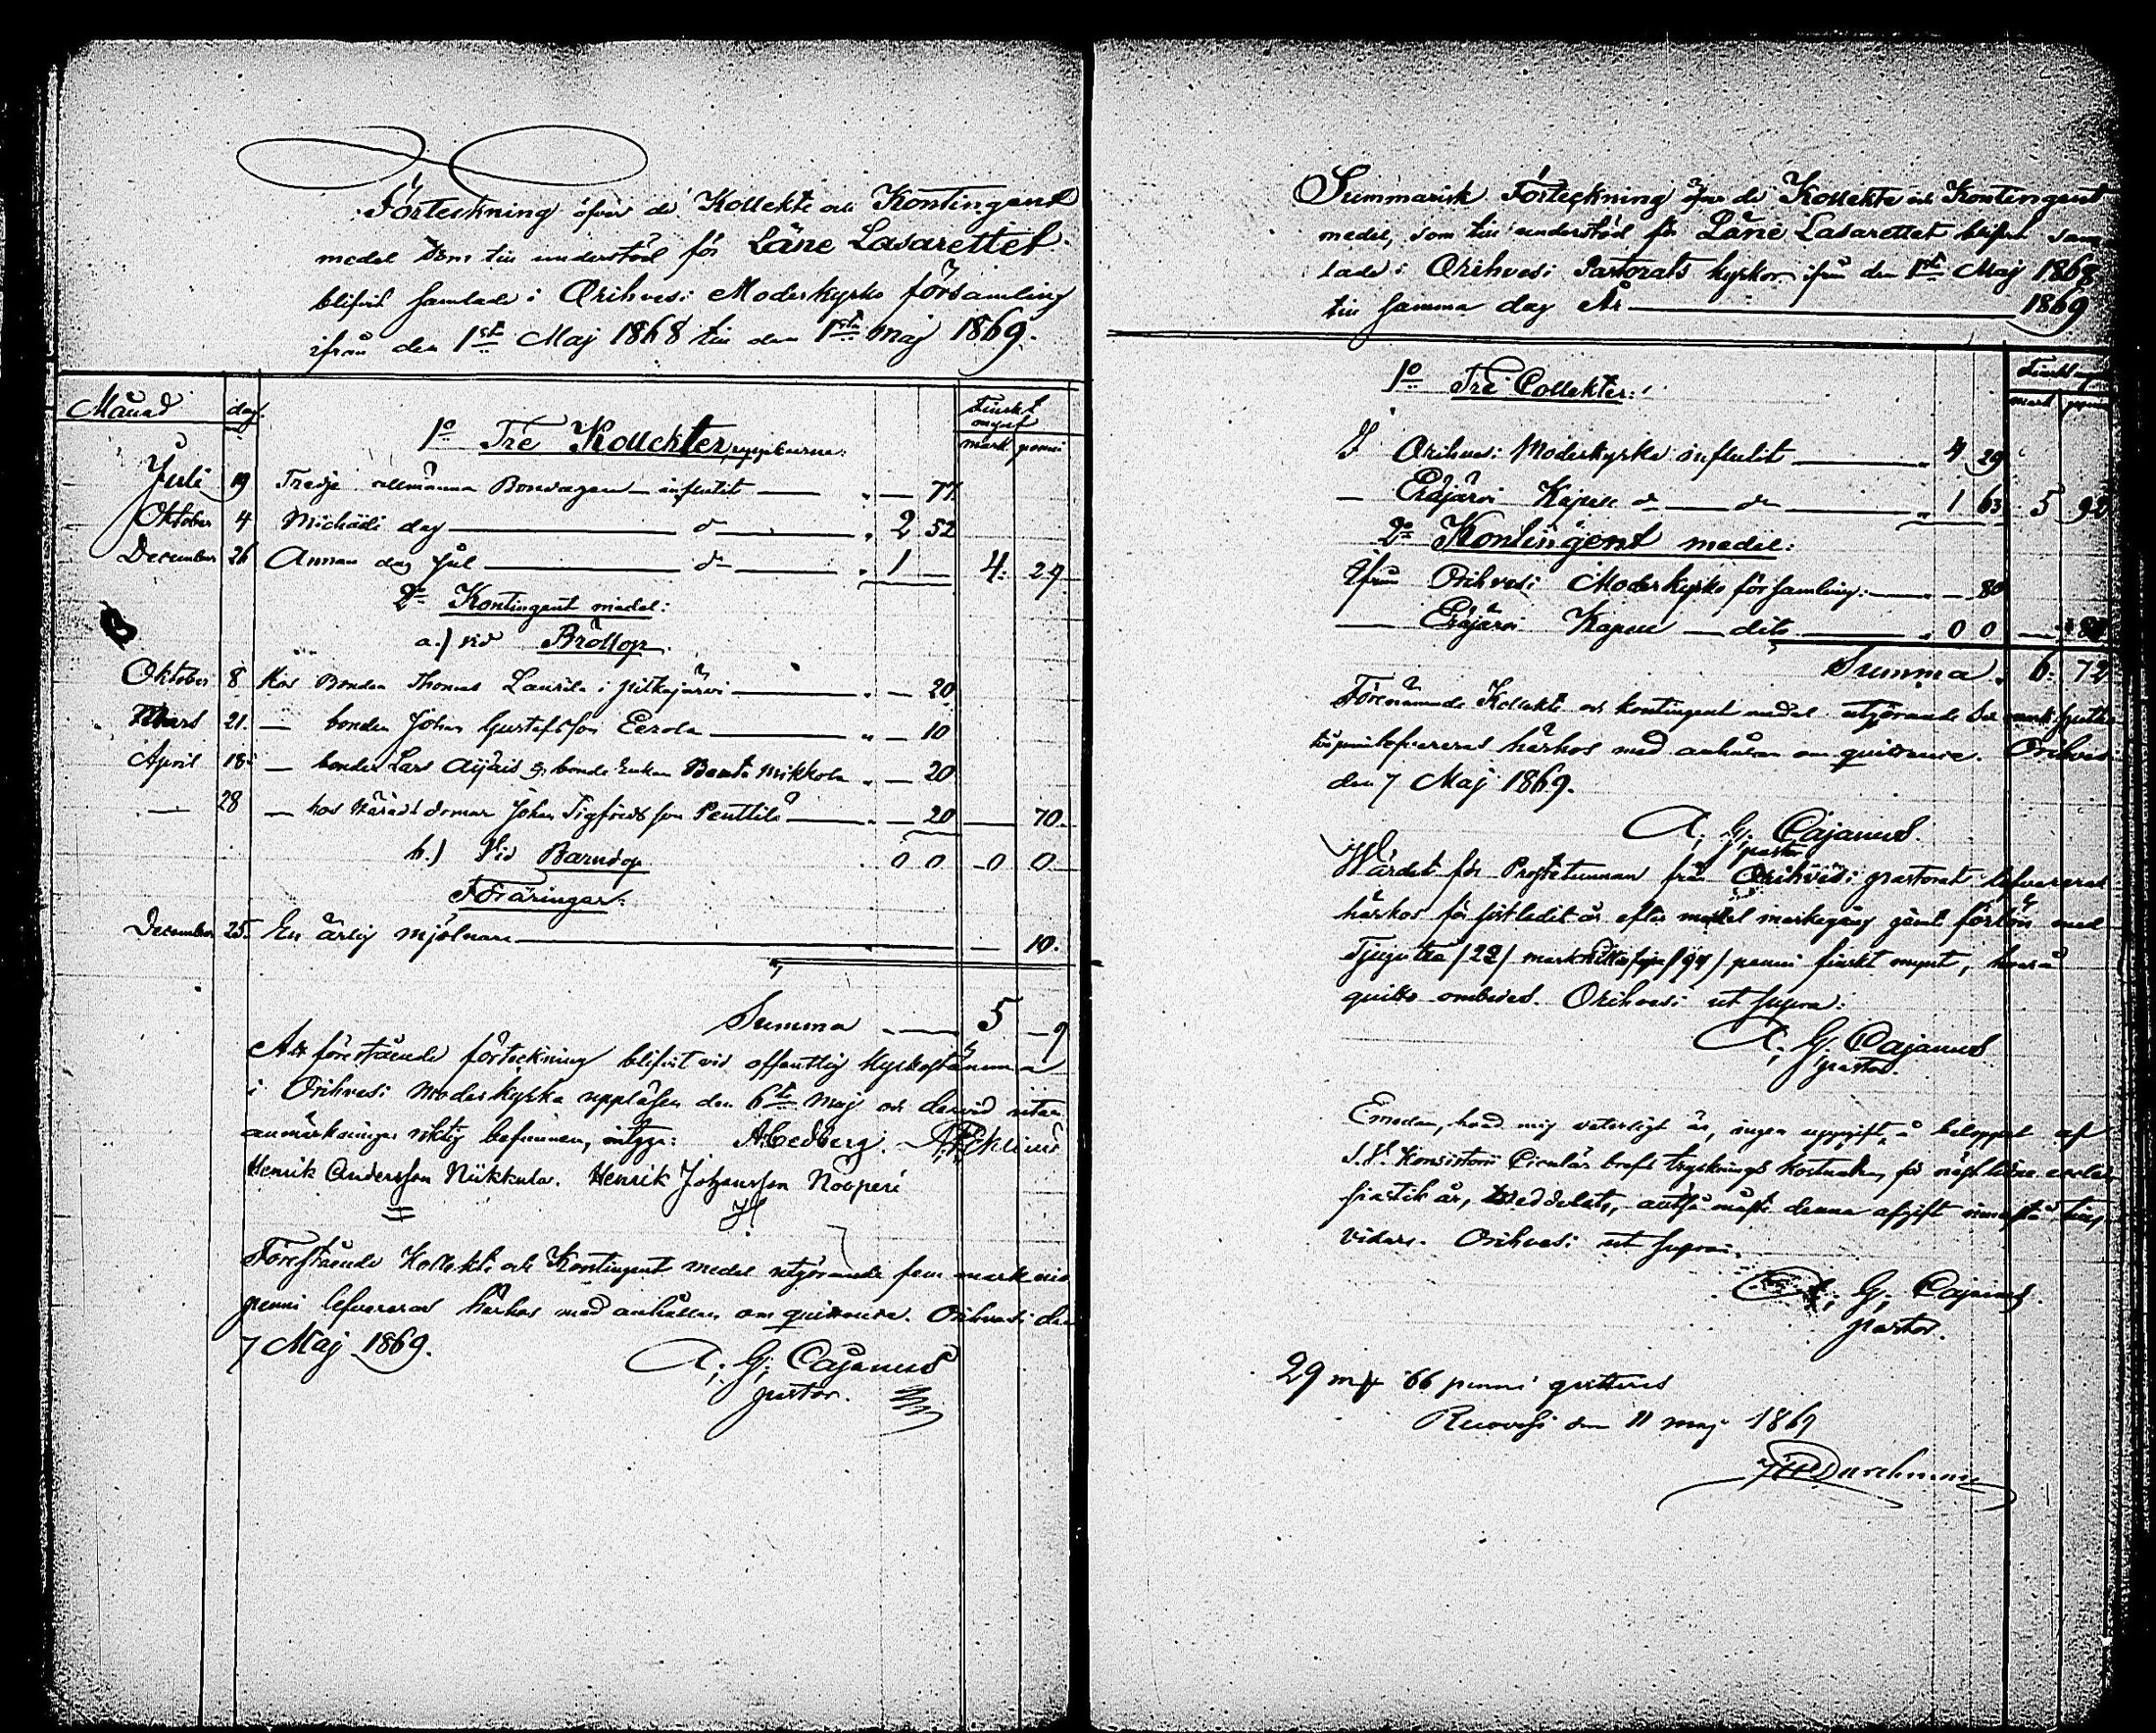 Förteckning öfver de Kollekte och Kontingent
medel som till understöd för Läne Lasarettet
blifvit samlade i Orihvesi Moderkyrko församling
ifrån den 1sta Maj 1868 till den 1sta Maj 1869.
Månad dag. Finskt mynt
mark penni
1o Tre Kollekter, uppburna:
Juli 19 Tredje allmänna Böndagen influtit — „ — 77.
Oktober 4 Michaëli dag — d:o — „ 2 52
December 26 Annan dag Jul — d:o — „ 1 — 4. 29.
2o Kontingent medel:
a.) vid Bröllop.
Oktober 8 Hos Bonden Thomas Laurila i Pitkäjärvi — „ — 20.
Mars 21. — bonden Johan Gustafsson Eerola — „ — 10
April 18 — bonden Lars Äijäis bonde Enkan Mikkola „ — 20
— 28 — hos Häradsdomar Johan Sigfridsson Penttilä — „ — 20 — 70.
b.) Vid Barndop 0 0 — 0 0
Föräringar.
December 25. En ärlig mjölnare — — 10.
Summa — 5 — 9
Att förestående förteckning blifvit vid offentlig Kyrkostämma
i Orihvesi Moderkyrka uppläsen den 6te Maj och dervid utan
anmärkningar riktig befunnen, intyga: A. Cedberg.
Henrik Andersson Niikkula. Henrik Johansson Nooperi
Förestående Kollekte och Kontingent medel utgörande fem mark nio
penni lefvereras härhos med anhållan om quittence. Orihvesi den
7 Maj 1869.
A. G. Cajanus
pastor.
Summarisk Förteckning öfver de Kollekte och Kontingent
medel, som till understöd för Läne Lasarettet blifvit sam-
lade i Orihvesi Pastorats kyrkor ifrån den 1sta Maj 1868
till samma dag År — 1869
Finskt mynt
mark penni
1o Tre Collekter:
I Orihvesi Moderkyrka influtit — „ 4 29
— Eräjärvi Kapell d:o — d:o — „ 1 63 5 92
2o Kontingent medel:
Ifrån Orihvesi Moderkyrko församling: — — 80
— Eräjärvi Kapell — dito — „ 0 0 — 80
Summa „ 6. 72
Förenämnde Kollekte och kontingent medel utgörande sex mark sjuttio
två penni lefvereras härhos med anhållan om quittence. Orihvesi
den 7 Maj 1869.
A. G. Cajanus.
pastor
Wärdet för Prostetunnan från Orihvesi pastorat lefvereras
härhos för sistledit år efter medel markegång jämte förlön med
Tjugutvå /22/ mark nittiofyra /94/ penni finskt mynt, hvarå
quitto ombedes. Orihvesi ut supra:
A. G. Cajanus
pastor.
Emedan, hvad mig veterligt är, ingen uppgift å beloppet af
Konsistorii Circulär brefs trycknings kostnaden för nästlidne eccle-
siastik år, meddelats, altså måste denna afgift innestå tills
vidare. Orihvesi ut supra.
A. G. Cajanus.
pastor.
29 mk 66 penni qvitteras
Ruovesi den 11 maj 1869
Durchman